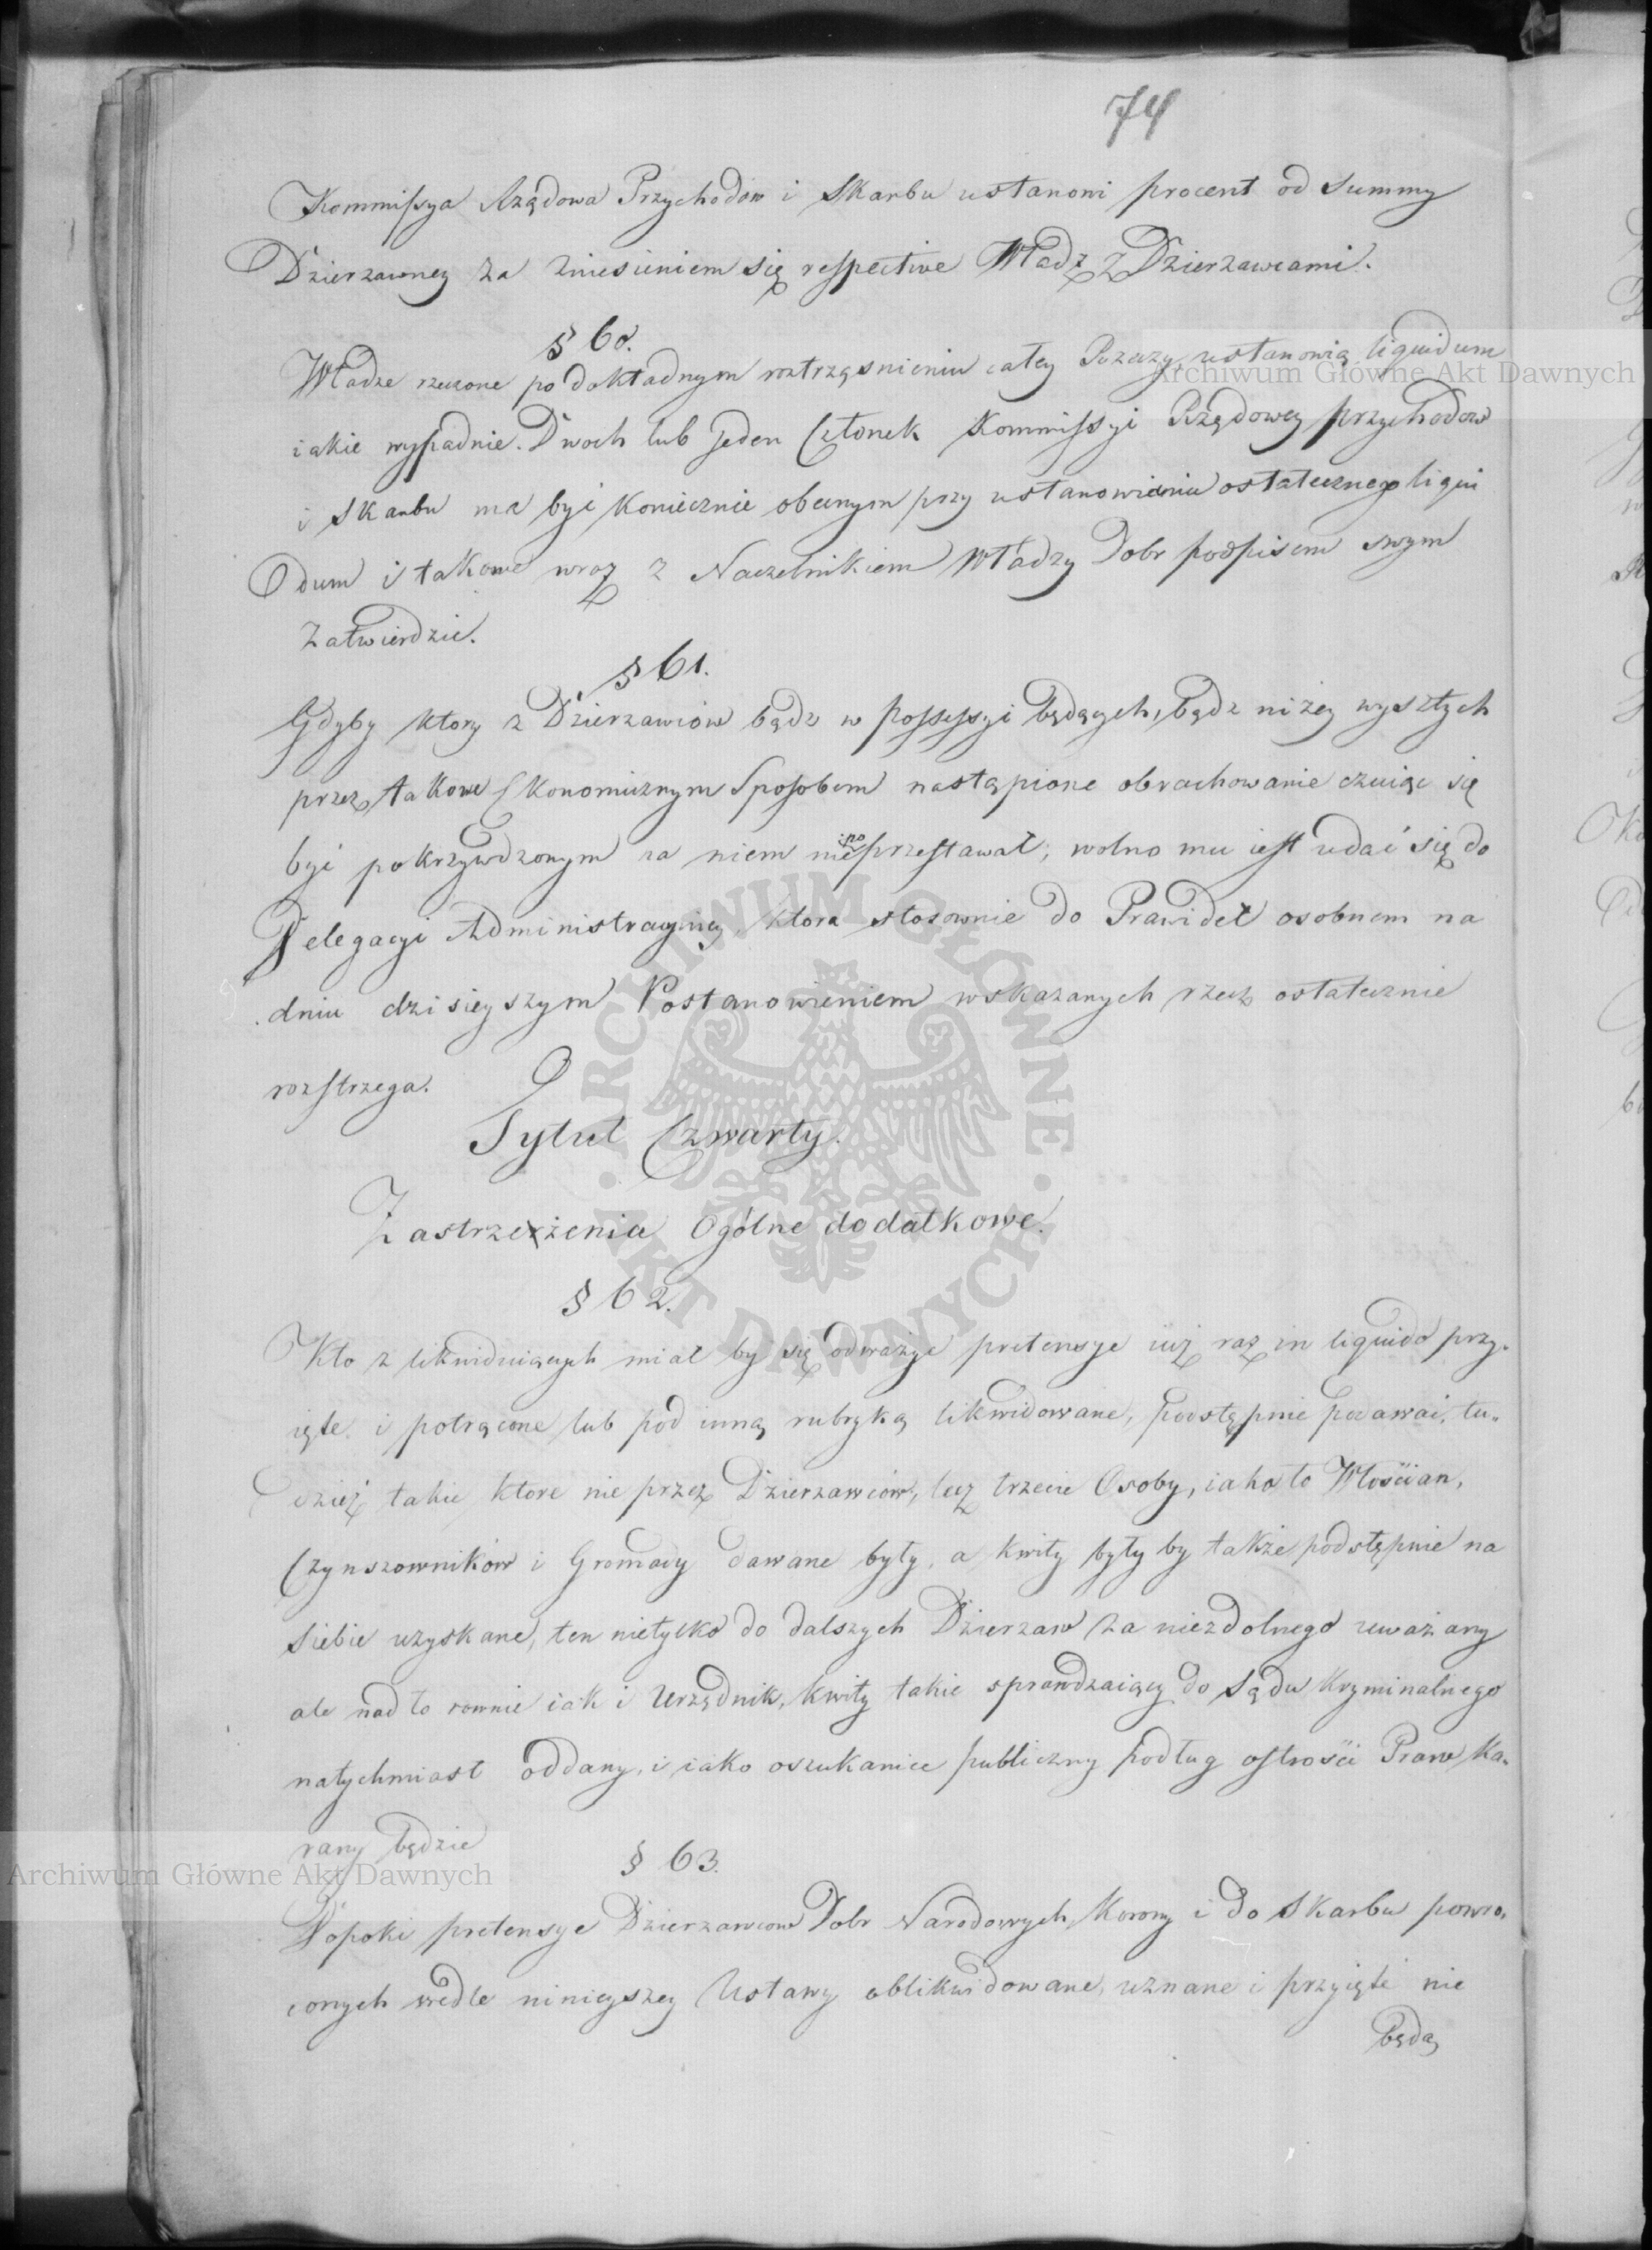 74
Kommissya Rządowa Przychodów i Skarbu ustanowi procent od Summy
Dzierzawney za zniesieniem się respective Władz z Dzierzawcami.
§ 60.
Władze rzeczone po dokładnym roztrząsnieniu całey Rzeczy, ustanowią liquidum
iakie wypadnie. Dwoch lub jeden Członek Kommissyi Rządowey przychodow
i Skarbu ma być koniecznie obecnym przy ustanowieniu ostatecznego liqui
dum i takowe wraz z Naczelnikiem Władzy Dobr podpisem swym
zatwierdzić.
§ 61.
Gdyby ktory z Dzierzawców bądź w possessyi będących, bądz niżey wyszłych
przez takowe Ekonomicznym Sposobem nastąpione obrachowanie czuiąc się
być pokrzywdzonym na niem nie przestawał; wolno mu iest udać się do
Delegacyi Administracyiney ktora stosownie do Prawideł osobnem na
dniu dzisieyszym Postanowieniem wskazanych rzecz ostatecznie
rozstrzega.
Tytuł Czwarty.
Zastrzeżenia Ogólne dodatkowe.
§ 62.
Kto z likwiduiących miał by się odważyć pretensye iuż raz in liquido przy-
ięte i potrącone lub pod inną rubryką likwidowane, podstępnie podawać, tu-
dzież takie ktore nie przez Dzierzawców, lecz trzecie Osoby, iako to Włościan,
Czynszowników i Gromady dawane były, a kwity były by także podstępnie na
siebie uzyskane, ten nietylko do dalszych Dzierzaw za niezdolnego uważany
ale nadto rownie iak i Urzędnik, kwity takie sprawdzaiący do Sądu kryminalnego
natychmiast oddany, i iako oszukaniec publiczny podług ostrości Praw ka-
rany będzie
§ 63.
Dopoki pretensye Dzierzawcow Dobr Narodowych, Korony i do Skarbu powro-
conych wedle ninieyszey Ustawy oblikwidowane, uznane i przyięte nie
będą
Archiwum Główne Akt Dawnych
Archiwum Główne Akt Dawnych
· ARCHIWUM GŁÓWNE · AKT DAWNYCH